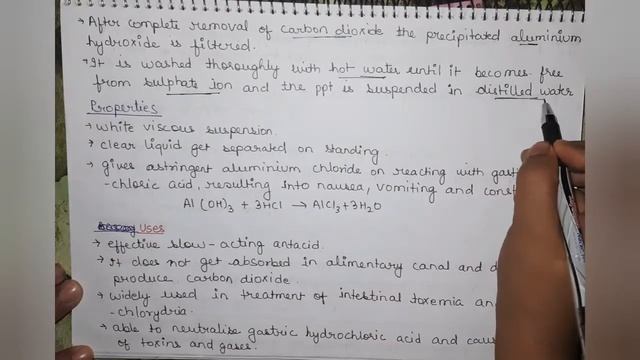 → After complete removal of carbon dioxide the precipitated aluminium
hydroxide is filtered.
→ It is washed thoroughly with hot water until it becomes free
from sulphate ion and the ppt is suspended in distilled water
Properties
→ white viscous suspension.
→ clear liquid get separated on standing.
→ gives astringent aluminium chloride on reacting with gast
-chloric acid, resulting into nausea, vomiting and const
Al(OH)3 + 3HCl → AlCl3 + 3H2O
Uses
→ effective slow-acting antacid.
→ It does not get absorbed in alimentary canal and d
produce carbon dioxide.
→ widely used in treatment of intestinal toxemia an
-chlorydria.
→ able to neutralise gastric hydrochloric acid and caus
of toxins and gases.